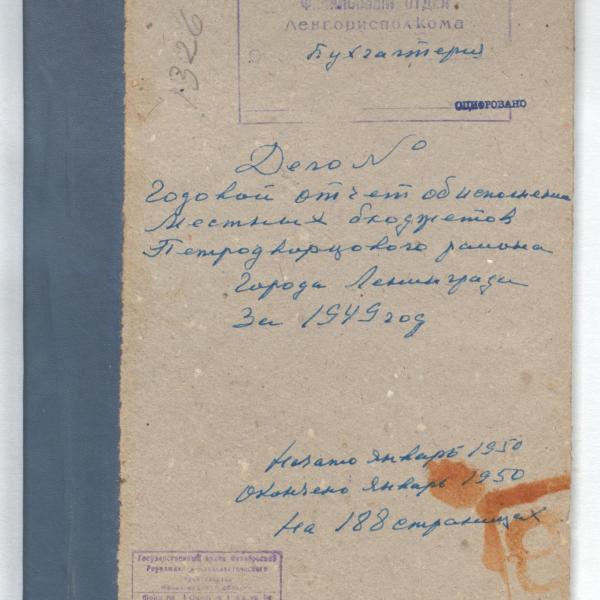 Финансовый отдел
Ленгорисполкома
Бухгалтерия
1326
ОЦИФРОВАНО
Дело №
Годовой отчет об исполнении
Местных бюджетов
Петродворцового района
города Ленинграда
За 1949 год
Начато январь 1950
Окончено январь 1950
На 188 страницах
Государственный архив Октябрьской